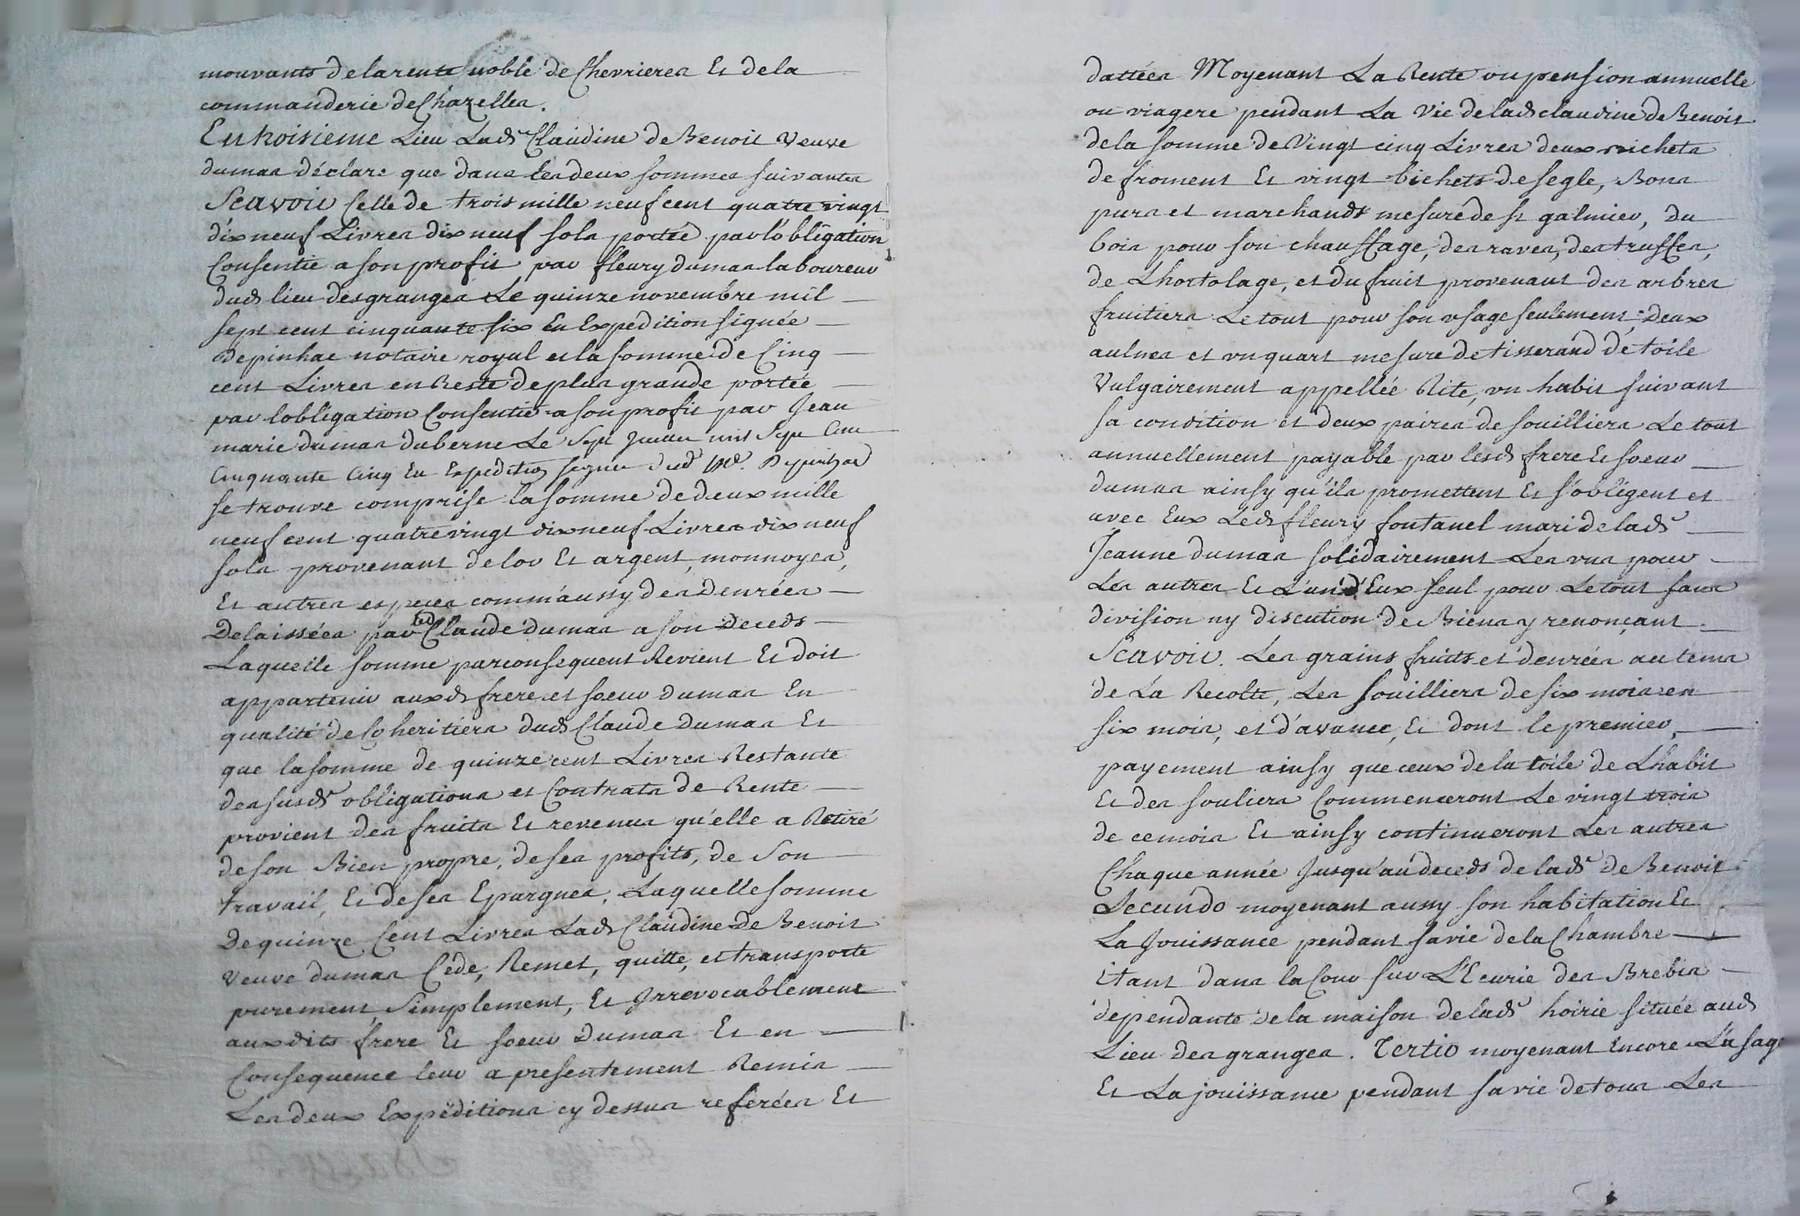 mouvants de la rente noble de Chevrieres Et de la
commanderie de Chazelles.
En troisieme Lieu Lad.e Claudine de Benoit Veuve
dumas déclare que dans les deux sommes suivantes
Scavoir Celle de trois mille neuf cent quatre vingt
dix neuf Livres dix neuf sols portée par l'obligation
Consentie a son profit par fleury dumas laboureur
dud lieu des granges Le quinze novembre mil
sept cent cinquante six En Expedition signée
Depinhac notaire royal et la somme de Cinq
cent Livres en Reste de plus grande portée
par lobligation Consentie a son profit par Jean
marie dumas duberne Le Sept Janvier mil Sept Cent
Cinquante Cinq En Expedition signée dud Me. Depinhac
se trouve comprise la somme de deux mille
neuf cent quatre vingt dix neuf Livres dix neuf
sols provenant de lor Et argent, monnoyes,
Et autres especes comm'aussy des denrées
Delaissées par led Claude dumas a son Deceds
Laquelle somme par consequent Revient Et doit
appartenir auxd frere et soeur dumas En
qualité de Coheritiers dud Claude Dumas Et
que la somme de quinze cent Livres Restante
des susd.s obligations et Contrats de Rente
provient des fruits Et revenus qu'elle a Retiré
de son Bien propre, de ses profits, de Son
travail, Et de ses Epargnes, Laquelle somme
De quinze Cent Livres Lad Claudine De Benoit
Veuve dumas Cede, Remet, quitte, et transporte
purement, Simplement, Et Irrevocablement
aux dits frere Et soeur Dumas Et en
Consequence leur a presentement Remis
Les deux Expëditions cy dessus referées Et
dattées Moyenant La Rente ou pension annuelle
ou viagere pendant La Vie de lad claudine de Benoit
de la somme de Vingt cinq Livres deux bichets
de froment Et vingt bichets de segle, Bons
purs et marchands mesure de St galmier, du
bois pour son chauffage, des raves, des truffes,
de Lhortolage, et du fruit provenant des arbres
fruitiers Le tout pour son usage seulement, Deux
aulnes et un quart mesure de tisserand de toile
Vulgairement appellée Rite, un habit suivant
sa condition et deux paires de souilliers Le tout
annuellement payable par lesd frere Et soeur
dumas ainsy qu'ils promettent Et s'obligent et
avec Eux Led fleury fontanel mari de lad.e
Jeanne dumas solidairement Les uns pour
Les autres Et L'un d'Eux seul pour Le tout sans
division ny discution de Biens y renonçant
Scavoir. Les grains fruits et denrées au tems
de La Recolte, Les souilliers de six mois en
six mois, et d'avance, Et dont le premier,
payement ainsy que ceux de la toile de Lhabit
Et des souliers Commenceront Le vingt trois
de ce mois Et ainsy continueront Les autres
Chaque année Jusqu'au deceds de lad.e de Benoit
Secundo moyenant aussy son habitation Et
La Jouissance pendant sa vie de la Chambre
Etant dans la Cour sur L'Ecurie des Brebis
dependante de la maison de lad.e hoirie située aud
Lieu des granges. Tertio moyenant Encore L'usage
Et La jouissance pendant sa vie de tous Les